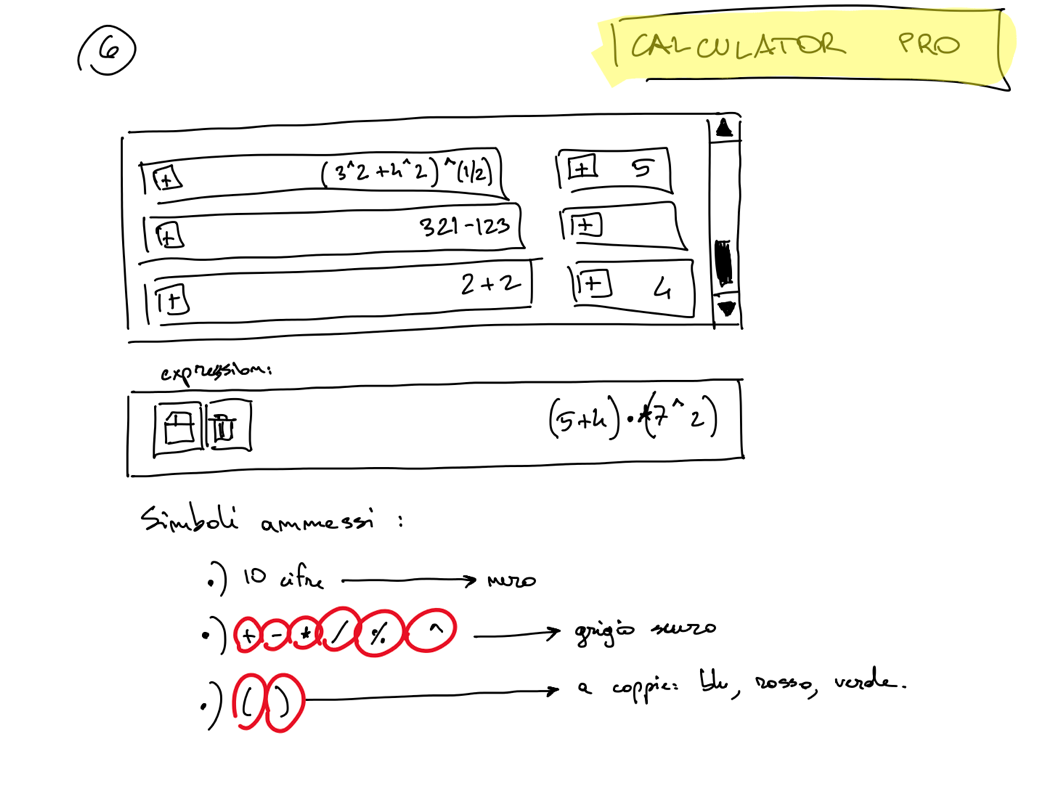 6
CALCULATOR PRO
+ (3^2+4^2)^(1/2) + 5
+ 321-123 +
+ 2+2 + 4
expression:
(5+4)•*(7^2)
Simboli ammessi :
•) 10 cifre → nero
•) + - * / % ^ → grigio scuro
•) ( ) → a coppie: blu, rosso, verde.